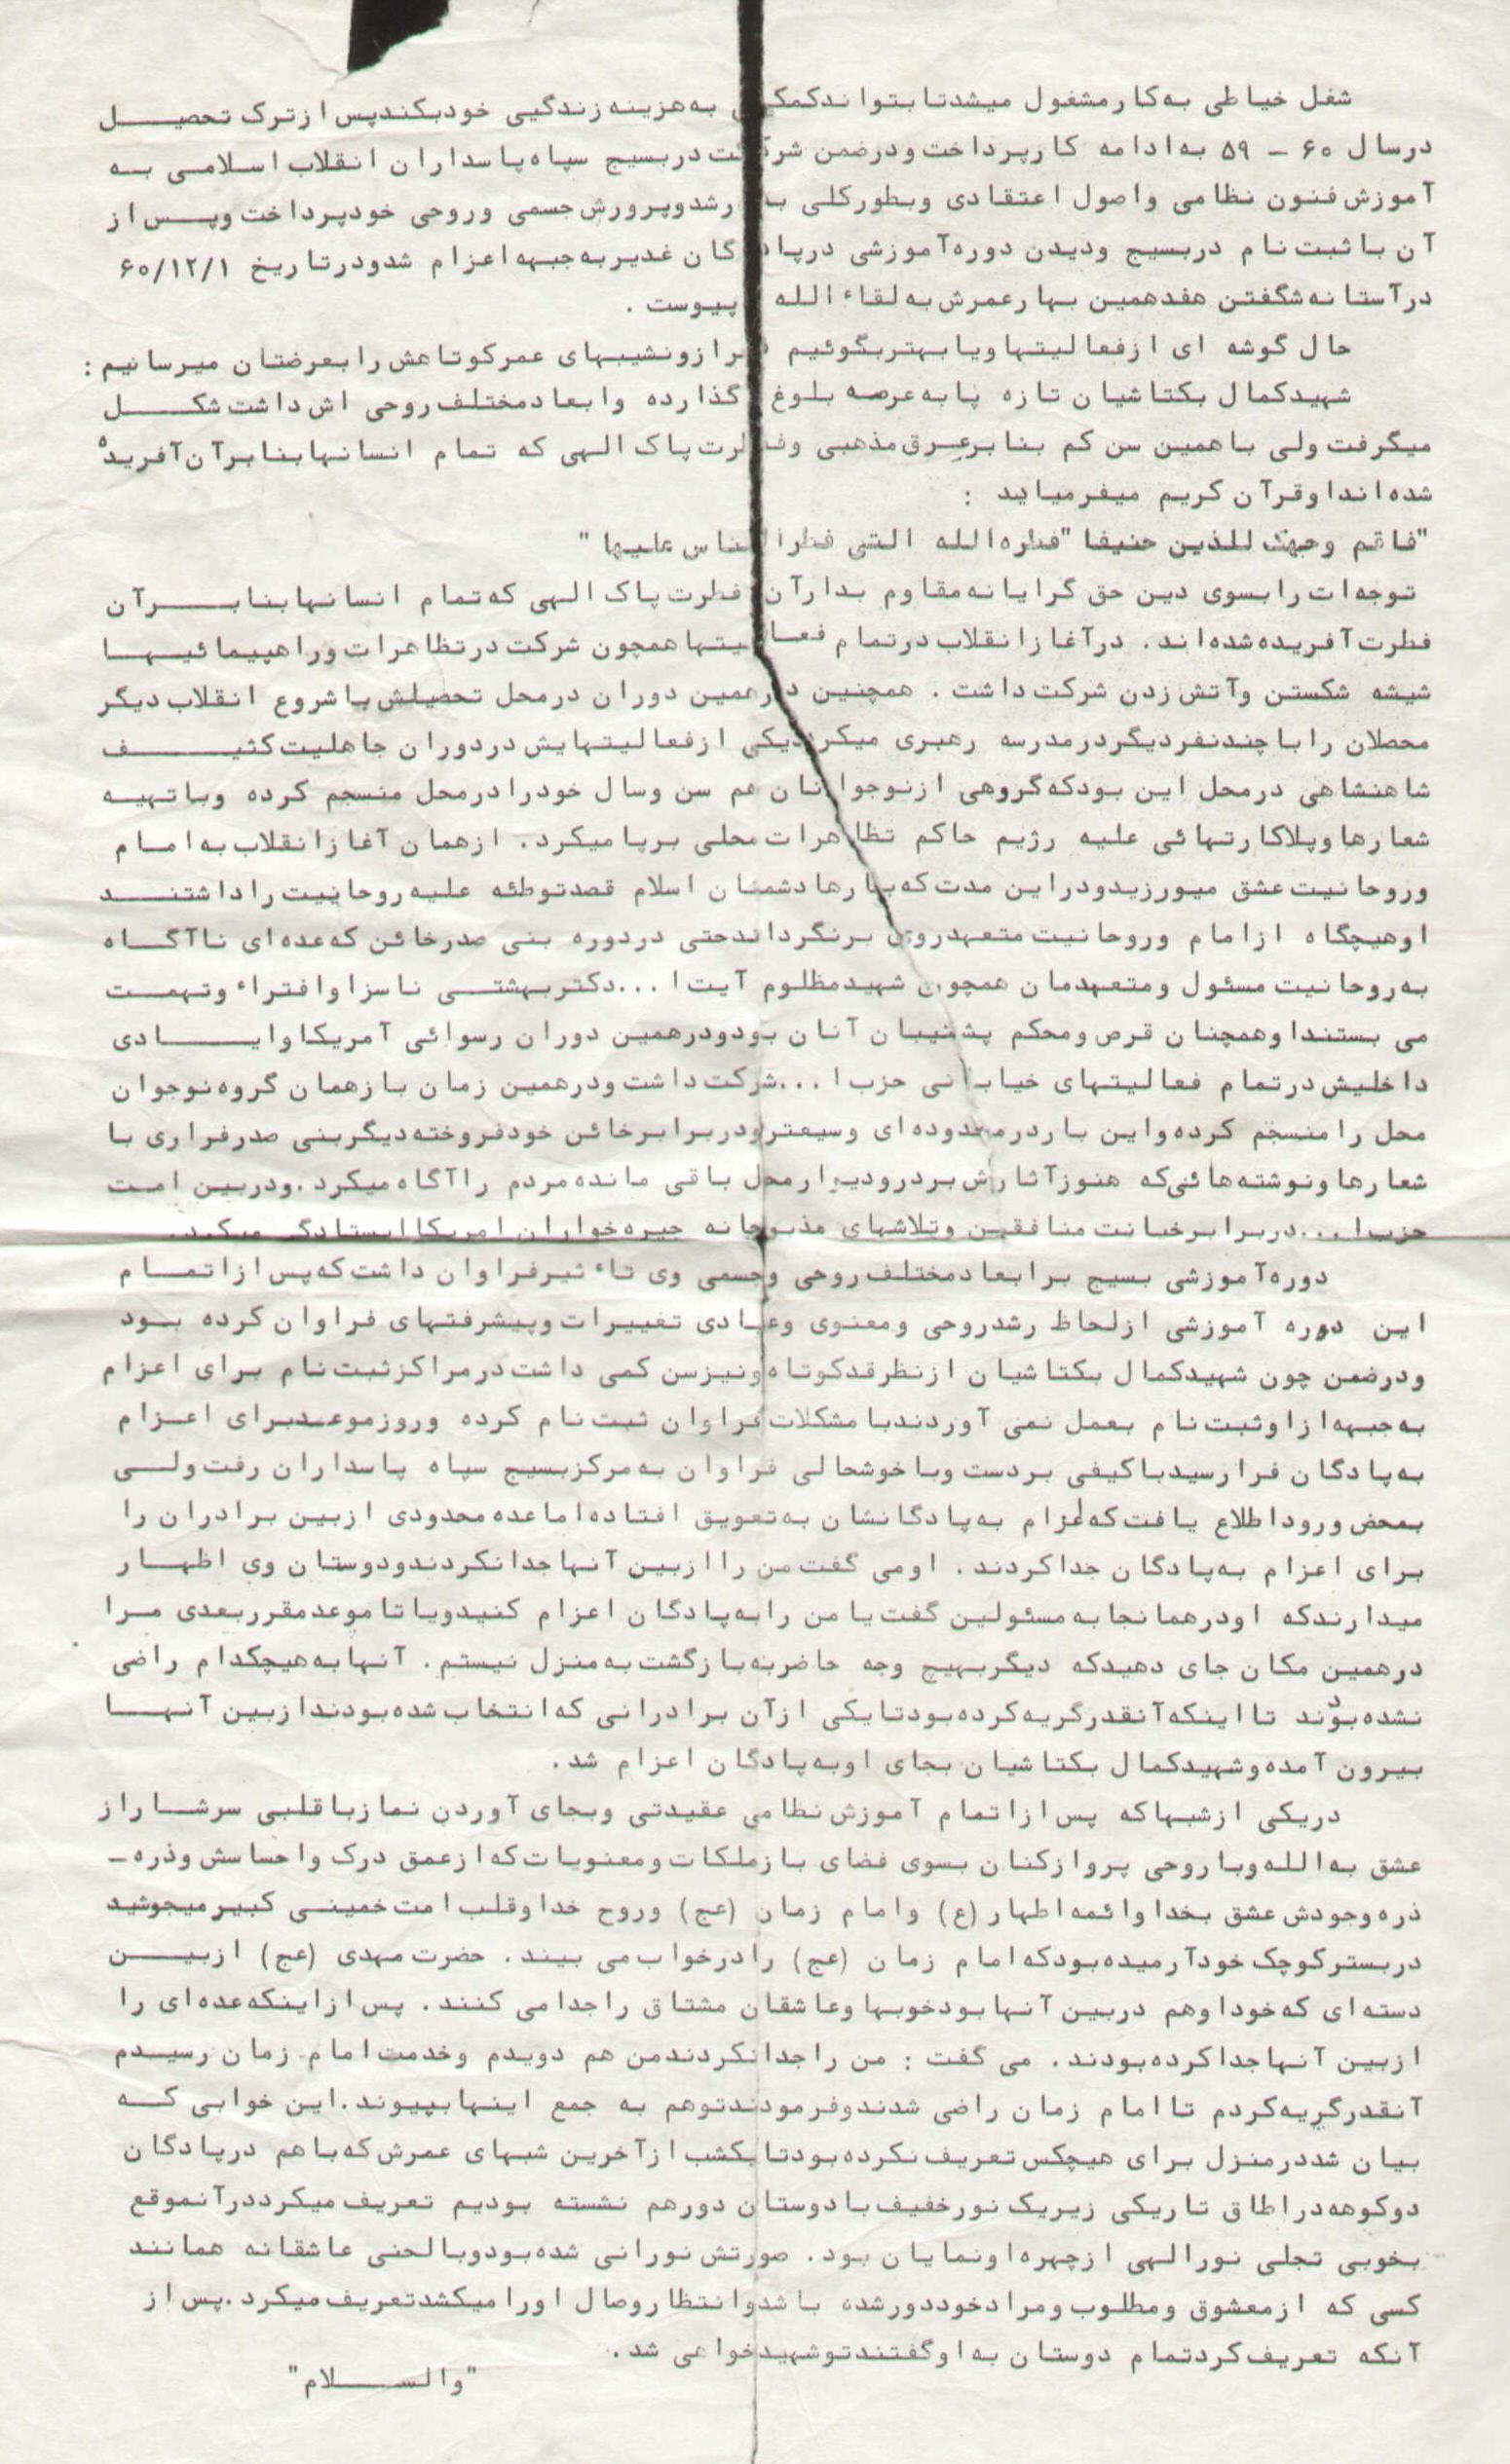 شغل خیاطی به کار مشغول میشد تا بتواند کمکی به هزینه زندگیی خود بکند پس از ترک تحصیل
در سال ۶۰ – ۵۹ به ادامه کار پرداخت و در ضمن شرکت در بسیج سپاه پاسداران انقلاب اسلامی به
آموزش فنون نظامی و اصول اعتقادی و بطور کلی به رشد و پرورش جسمی و روحی خود پرداخت و پس از
آن با ثبت نام در بسیج و دیدن دوره آموزشی در پادگان غدیر به جبهه اعزام شد و در تاریخ ۶۰/۱۲/۱
در آستانه شگفتن هفدهمین بهار عمرش به لقاء الله پیوست .
حال گوشه ای از فعالیتها و یا بهتر بگوئیم فراز و نشیبهای عمر کوتاهش را بعرضتان میرسانیم :
شهید کمال بکتاشیان تازه پا به عرصه بلوغ گذارده و ابعاد مختلف روحی اش داشت شکل
میگرفت ولی با همین سن کم بنا بر عرق مذهبی و فطرت پاک الهی که تمام انسانها بنا بر آن آفریده
شده اند او قرآن کریم میفرماید :
"فاقم وجهک للذین حنیفا "فطره الله التی فطر الناس علیها "
توجه ات را بسوی دین حق گرایانه مقاوم بدار آن فطرت پاک الهی که تمام انسانها بنا بر آن
فطرت آفریده شده اند . در آغاز انقلاب در تمام فعالیتها همچون شرکت در تظاهرات و راهپیمائیها
شیشه شکستن و آتش زدن شرکت داشت . همچنین در همین دوران در محل تحصیلش با شروع انقلاب دیگر
محصلان را با چند نفر دیگر در مدرسه رهبری میکرد یکی از فعالیتهایش در دوران جاهلیت کثیف
شاهنشاهی در محل این بود که گروهی از نوجوانان هم سن و سال خود را در محل منسجم کرده و با تهیه
شعارها و پلاکارتهائی علیه رژیم حاکم تظاهرات محلی برپا میکرد . از همان آغاز انقلاب به امام
و روحانیت عشق میورزید و در این مدت که بارها دشمنان اسلام قصد توطئه علیه روحانیت را داشتند
او هیچگاه از امام و روحانیت متعهد روی برنگرداند حتی در دوره بنی صدر خائن که عده ای ناآگاه
به روحانیت مسئول و متعهدمان همچون شهید مظلوم آیت ا ... دکتر بهشتی ناسزا و افتراء و تهمت
می بستند او همچنان قرص و محکم پشتیبان آنان بود و در همین دوران رسوائی آمریکا و ایادی
داخلیش در تمام فعالیتهای خیابانی حزب ا ... شرکت داشت و در همین زمان باز همان گروه نوجوان
محل را منسجم کرده و این بار در محدوده ای وسیعتر و در برابر خائن خود فروخته دیگر بنی صدر فراری با
شعارها و نوشته هائی که هنوز آثارش بر در و دیوار محل باقی مانده مردم را آگاه میکرد . و در بین امت
حزب ا ... در برابر خیانت منافقین و تلاشهای مذبوحانه جیره خواران امریکا ایستادگی میکرد .
دوره آموزشی بسیج بر ابعاد مختلف روحی و جسمی وی تاء ثیر فراوان داشت که پس از اتمام
این دوره آموزشی از لحاظ رشد روحی و معنوی و عبادی تغییرات و پیشرفتهای فراوان کرده بود
و در ضمن چون شهید کمال بکتاشیان از نظر قد کوتاه و نیز سن کمی داشت در مراکز ثبت نام برای اعزام
به جبهه از او ثبت نام بعمل نمی آوردند با مشکلات فراوان ثبت نام کرده و روز موعد برای اعزام
به پادگان فرا رسید با کیفی بر دست و با خوشحالی فراوان به مرکز بسیج سپاه پاسداران رفت ولی
بمحض ورود اطلاع یافت که اعزام به پادگانشان به تعویق افتاده اما عده محدودی از بین برادران را
برای اعزام به پادگان جدا کردند . او می گفت من را از بین آنها جدا نکردند و دوستان وی اظهار
میدارند که او در همانجا به مسئولین گفت یا من را به پادگان اعزام کنید و یا تا موعد مقرر بعدی مرا
در همین مکان جای دهید که دیگر بهیچ وجه حاضر به بازگشت به منزل نیستم . آنها به هیچکدام راضی
نشده بودند تا اینکه آنقدر گریه کرده بود تا یکی از آن برادرانی که انتخاب شده بودند از بین آنها
بیرون آمده و شهید کمال بکتاشیان بجای او به پادگان اعزام شد .
در یکی از شبها که پس از اتمام آموزش نظامی عقیدتی و بجای آوردن نماز با قلبی سرشار از
عشق به الله و با روحی پرواز کنان بسوی فضای باز ملکات و معنویات که از عمق درک و احساسش و ذره –
ذره وجودش عشق بخدا و ائمه اطهار (ع) و امام زمان (عج) و روح خدا و قلب امت خمینی کبیر میجوشید
در بستر کوچک خود آرمیده بود که امام زمان (عج) را در خواب می بیند . حضرت مهدی (عج) از بین
دسته ای که خود او هم در بین آنها بود خوبها و عاشقان مشتاق را جدا می کنند . پس از اینکه عده ای را
از بین آنها جدا کرده بودند . می گفت : من را جدا نکردند من هم دویدم و خدمت امام زمان رسیدم
آنقدر گریه کردم تا امام زمان راضی شدند و فرمودند تو هم به جمع اینها بپیوند . این خوابی که
بیان شد در منزل برای هیچکس تعریف نکرده بود تا یکشب از آخرین شبهای عمرش که با هم در پادگان
دوکوهه در اطاق تاریکی زیر یک نور خفیف با دوستان دور هم نشسته بودیم تعریف میکرد در آنموقع
بخوبی تجلی نور الهی از چهره او نمایان بود . صورتش نورانی شده بود و با لحنی عاشقانه همانند
کسی که از معشوق و مطلوب و مراد خود دور شده باشد و انتظار وصال او را میکشد تعریف میکرد . پس از
آنکه تعریف کرد تمام دوستان به او گفتند تو شهید خواهی شد .
"والسلام"